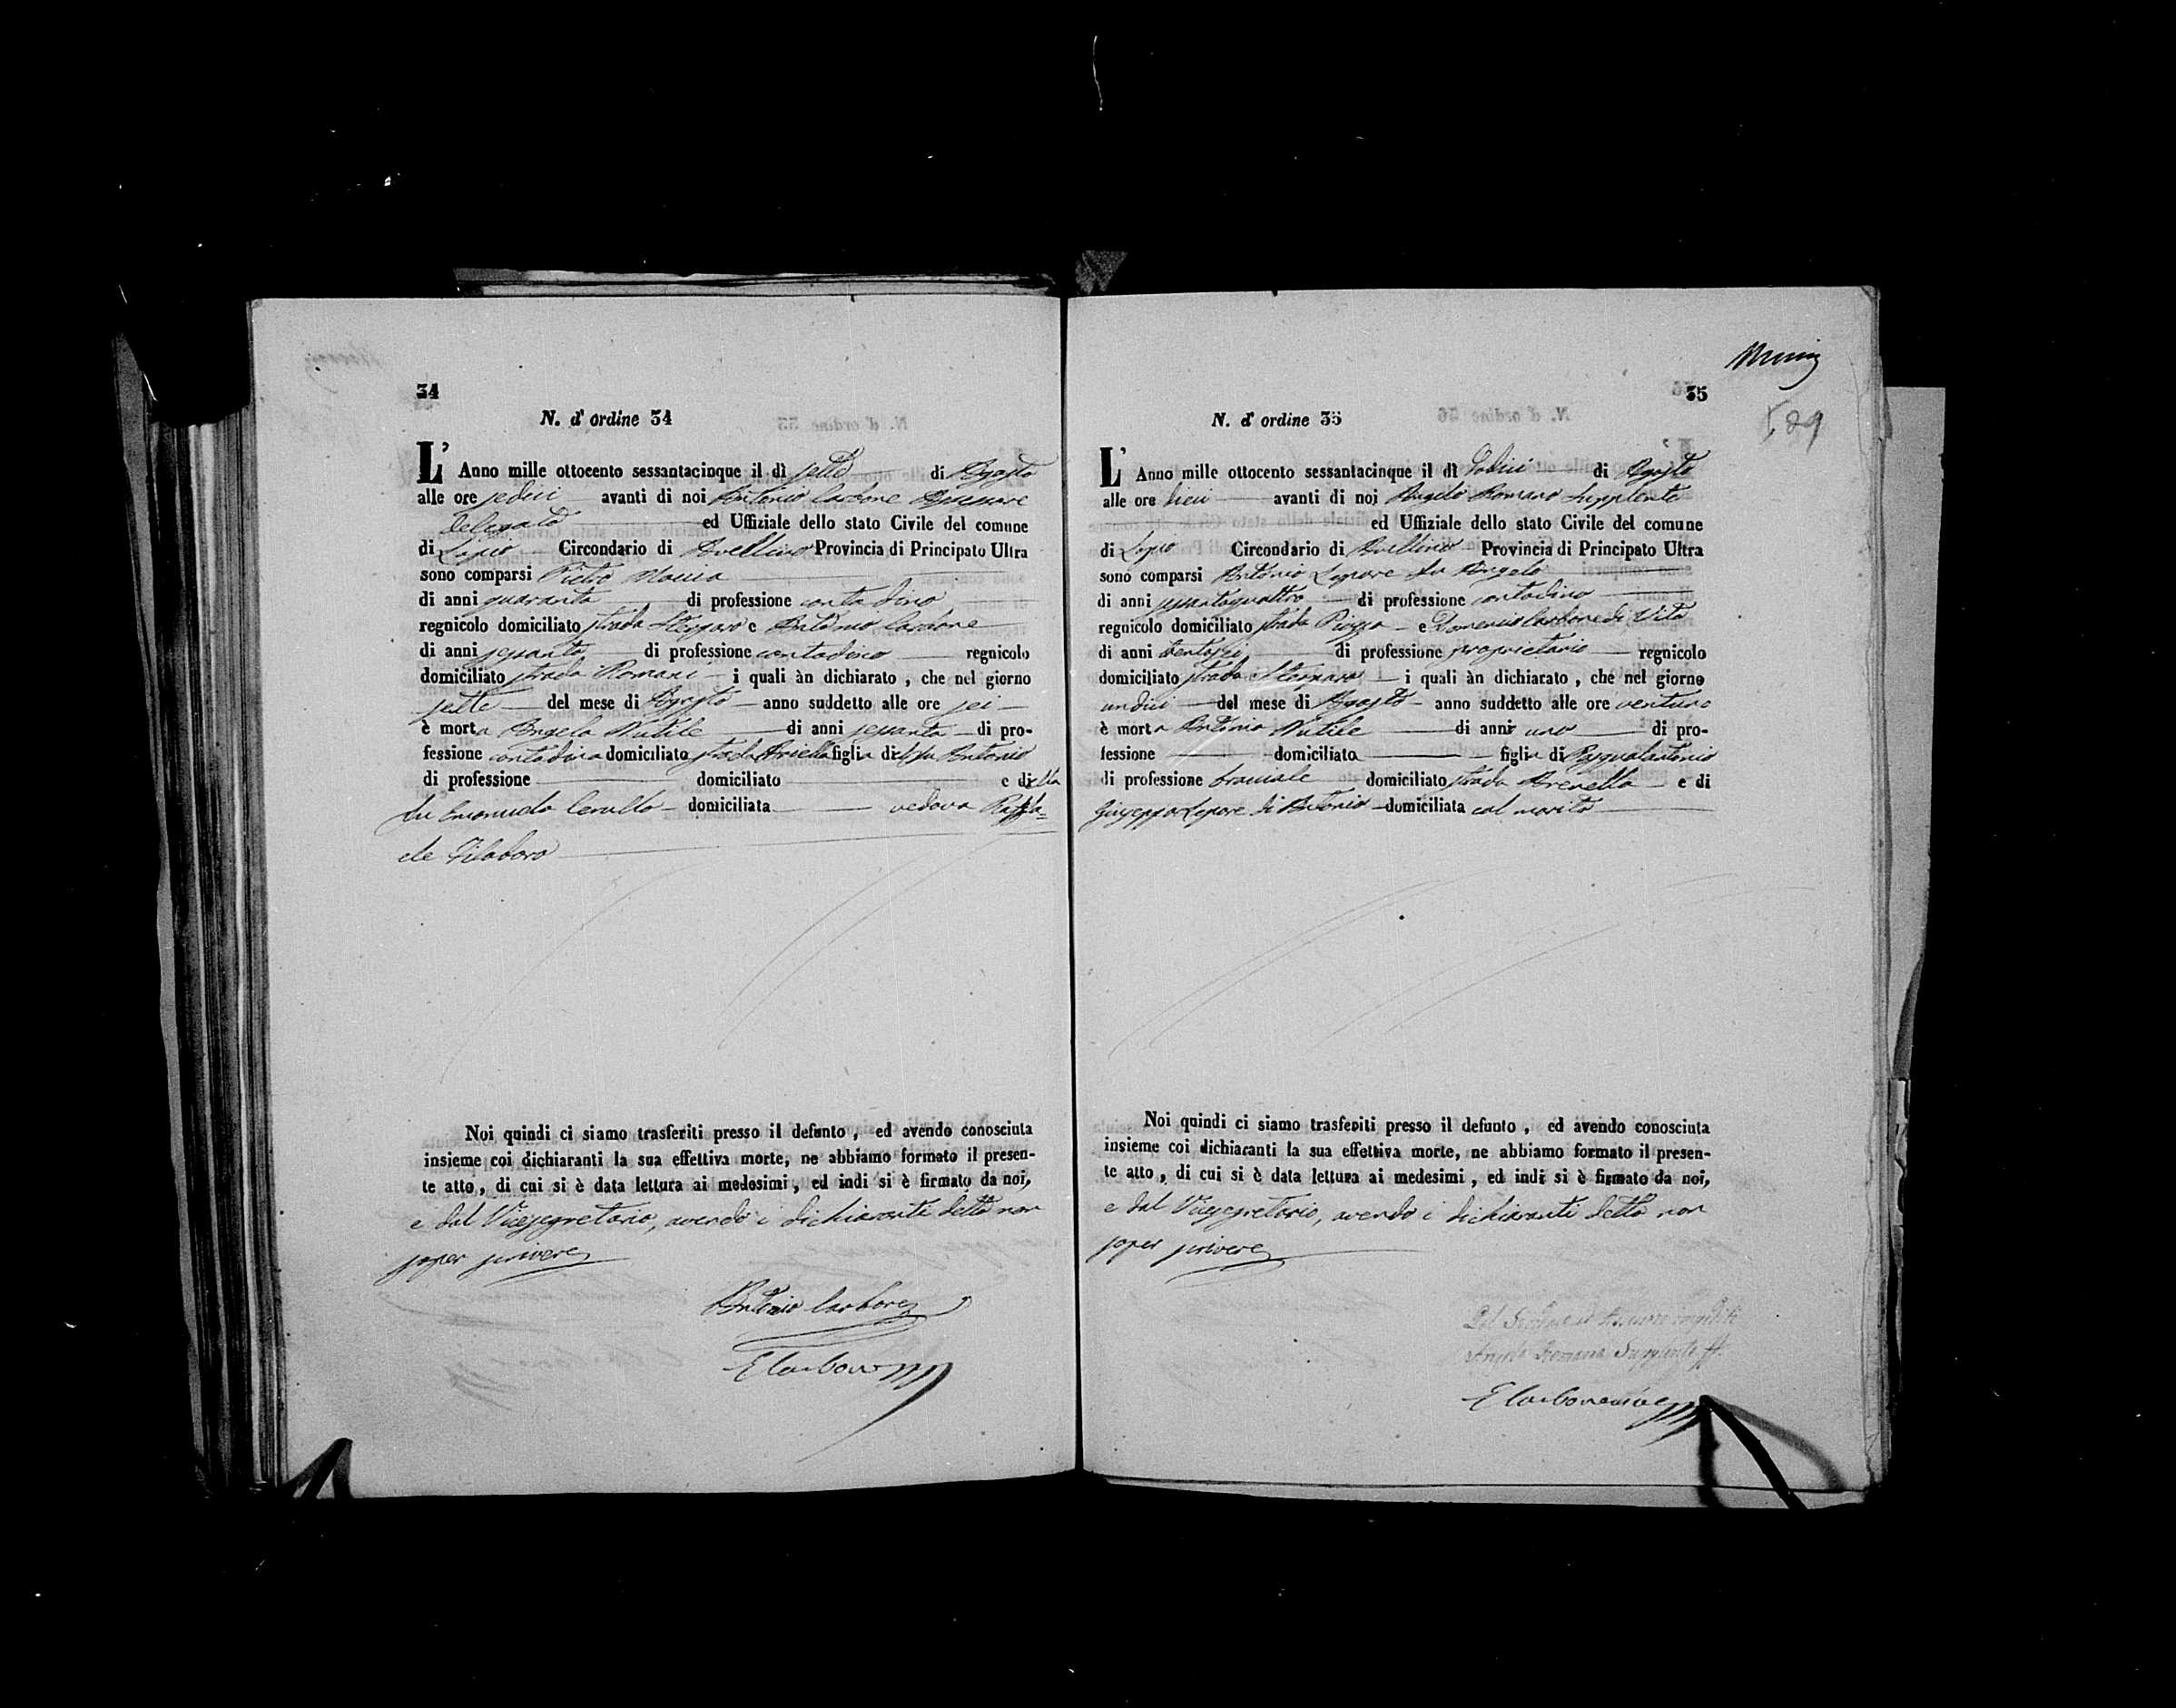 34
N. d' ordine 34
L' Anno mille ottocento sessantacinque il dì sette di Agosto
alle ore sedici avanti di noi Antonio Carbone Assessore
Delegato ed Uffiziale dello stato Civile del comune
di Lapio Circondario di Avellino Provincia di Principato Ultra
sono comparsi Pietro Maccia
di anni quaranta di professione contadino
regnicolo domiciliato strada e Antonio Carbone
di anni sessanta di professione contadino regnicolo
domiciliato strada Romani i quali àn dichiarato , che nel giorno
sette del mese di Agosto anno suddetto alle ore sei
è morta Angela Nutile di anni sessanta di pro-
fessione contadina domiciliato strada figlia del fu Antonio
di professione domiciliato e della
fu Emanuela Cerullo domiciliata vedova Raffa=
ele Filadoro
Noi quindi ci siamo trasferiti presso il defunto , ed avendo conosciuta
insieme coi dichiaranti la sua effettiva morte, ne abbiamo formato il presen-
te atto , di cui si è data lettura ai medesimi , ed indi si è firmato da noi,
e dal Vicesegretario, avendo i dichiaranti detto non
saper scrivere
Antonio Carbone
E Carbone
35
N. d' ordine 35
L' Anno mille ottocento sessantacinque il dì dodici di Agosto
alle ore dieci avanti di noi Angelo Romano Supplente
ed Uffiziale dello stato Civile del comune
di Lapio Circondario di Avellino Provincia di Principato Ultra
sono comparsi Antonio Lepore fu Angelo
di anni sessantaquattro di professione contadino
regnicolo domiciliato strada Piazza e Domenico Carbone di Vito
di anni ventisei di professione proprietario regnicolo
domiciliato strada i quali àn dichiarato , che nel giorno
undici del mese di Agosto anno suddetto alle ore ventuno
è morta Antonia Nutile di anni uno di pro-
fessione domiciliato figlia di Pasqualantonio
di professione bracciale domiciliato strada e di
Giuseppa Lepore di Antonio domiciliata col marito
Noi quindi ci siamo trasferiti presso il defunto , ed avendo conosciuta
insieme coi dichiaranti la sua effettiva morte, ne abbiamo formato il presen-
te atto , di cui si è data lettura ai medesimi , ed indi si è firmato da noi,
e dal Vicesegretario, avendo i dichiaranti detto non
saper scrivere
Angelo Romano Supplente ff.
E Carbone